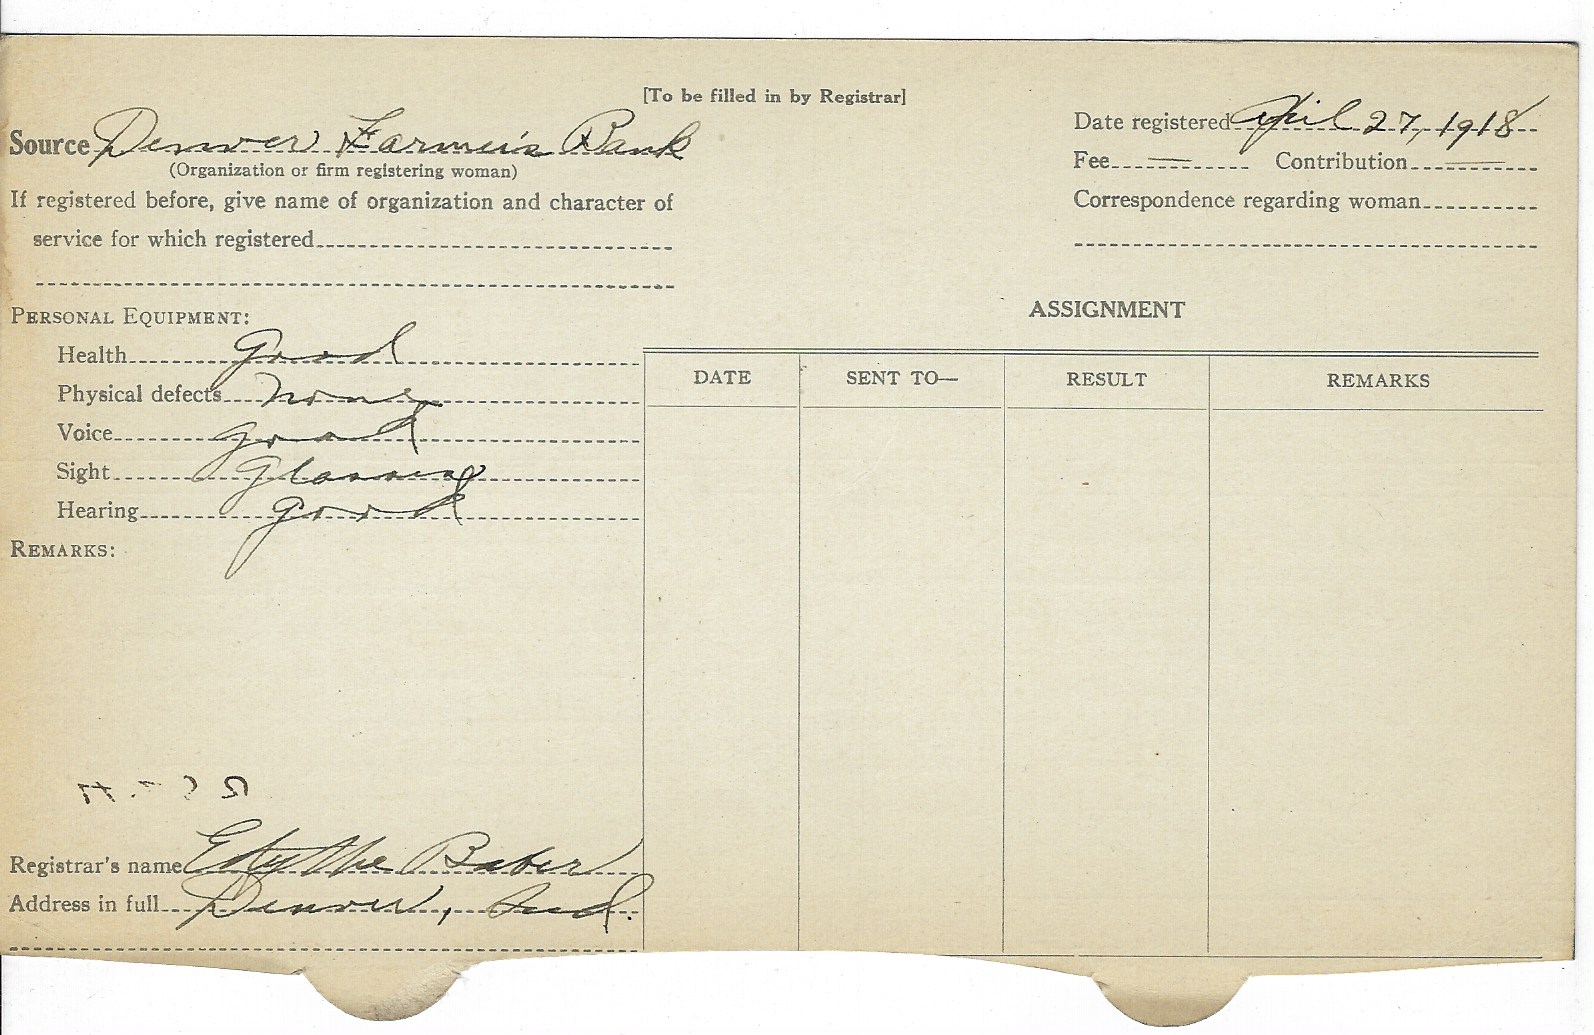 [To be filled in by Registrar]
Source Denver Farmer's Bank
(Organization or firm registering woman)
If registered before, give name of organization and character of
service for which registered
Date registered April 27, 1918
Fee — Contribution —
Correspondence regarding woman
PERSONAL EQUIPMENT:
Health good
Physical defects none
Voice good
Sight Glasses
Hearing good
REMARKS:
ASSIGNMENT
DATE SENT TO— RESULT REMARKS
Registrar's name Edythe Baber
Address in full Denver, Ind.